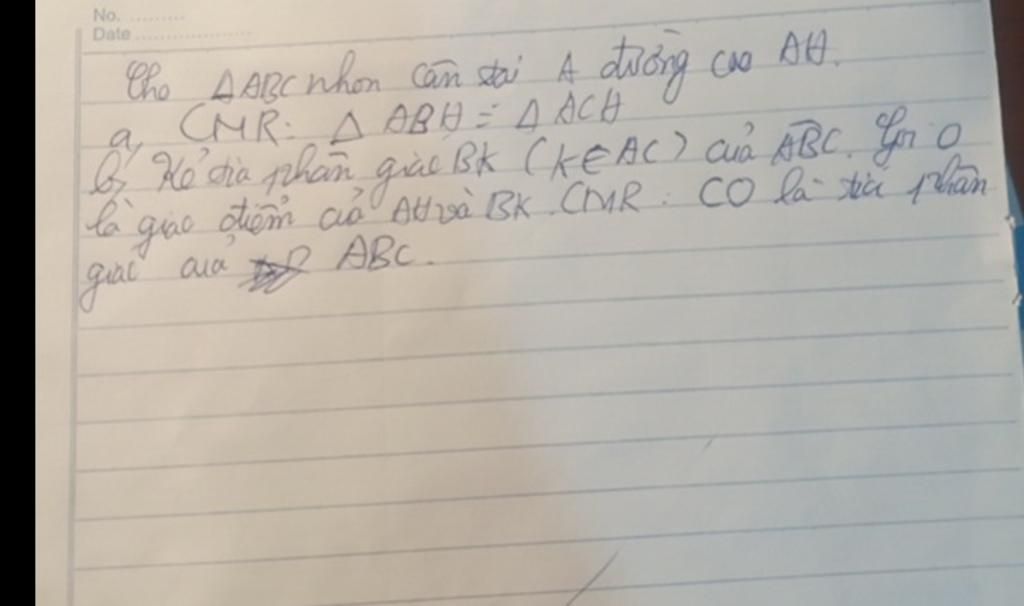 No. ............
Date ........................
Cho ΔABC nhọn cân tại A đường cao AH.
a, CMR: Δ ABH = Δ ACH
b, Kẻ tia phân giác BK (K∈AC) của ABC. Gọi O
là giao điểm của AH và BK. CMR: CO là tia phân
giác của ABC.